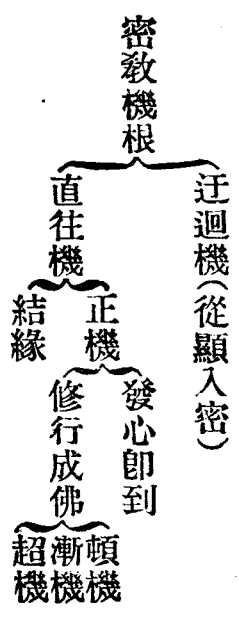 密敎機根
迂迴機(從顯入密)
直往機
正機
結緣
發心卽到
修行成佛
頓機
漸機
超機